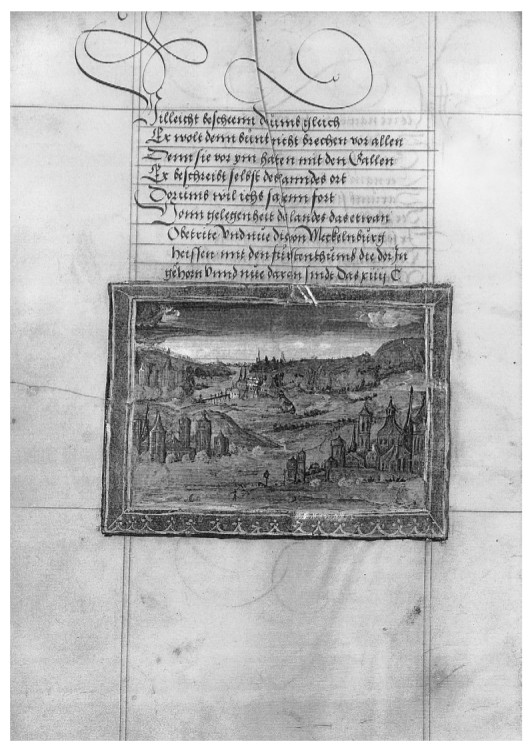 Villeicht beschienn dums gluch
Er wolt denn bunt nicht brechen vor allen
Denn sie vor ym haten mit den Gallen
Er beschreibt selbst des anndes ort
Dorums wil ichs sagenn fort
Vonn gelegenheit da landes das etwan
Obetrite Vnd nue die von Meckelnburg
heissen mit den furstenthums die dor Jn
gehorn Vnnd nue daron sindt Das xiiij C